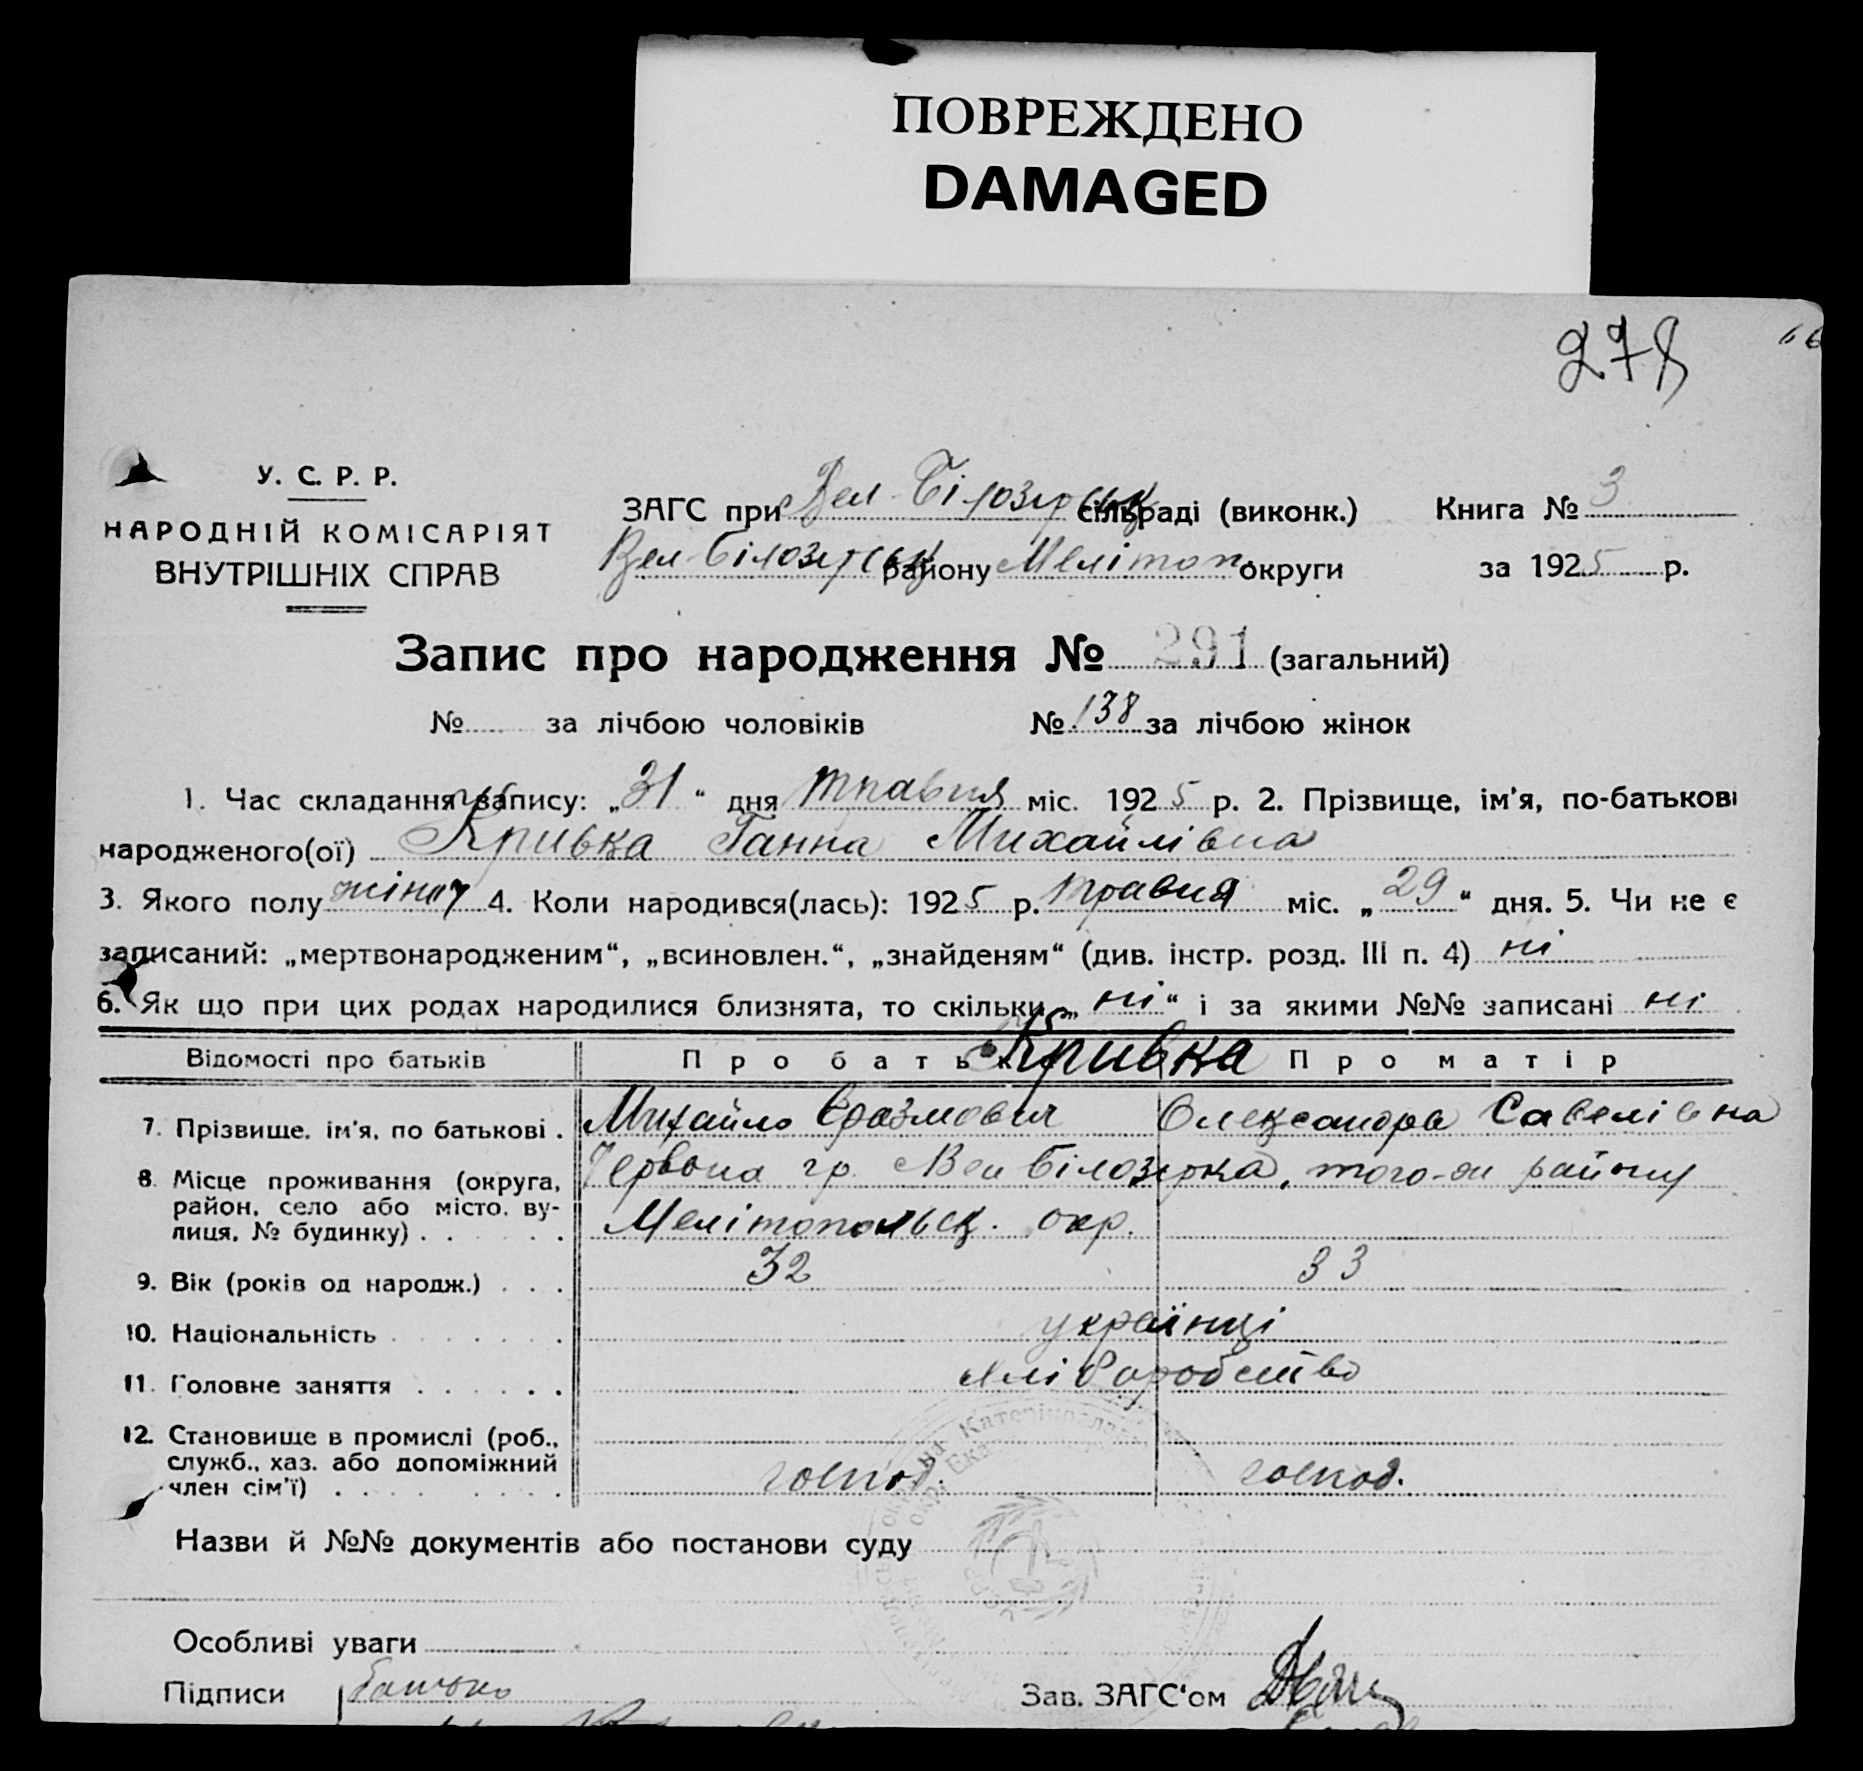 ПОВРЕЖДЕНО
DAMAGED
278
66
У. С. Р. Р.
НАРОДНІЙ КОМІСАРІЯТ
ВНУТРІШНІХ СПРАВ
ЗАГС при Вел-Білозірськ сільраді (виконк.) Книга № 3
Вел-Білозірськ району Мелітоп. округи за 1925 р.
Запис про народження № 291 (загальний)
№ за лічбою чоловіків № 138 за лічбою жінок
1. Час складання запису: „31“ дня травня міс. 1925 р. 2. Прізвище, ім'я, по-батькові
народженого(ої) Кривка Ганна Михайлівна
3. Якого полу жіноч 4. Коли народився(лась): 1925 р. травня міс. „29“ дня. 5. Чи не є
записаний: „мертвонародженим“, „всиновлен.“, „знайденям“ (див. інстр. розд. III п. 4) ні
6. Як що при цих родах народилися близнята, то скільки „ні“ і за якими №№ записані ні
Відомості про батьків Про батька Кривка Про матір
7. Прізвище, ім'я, по батькові . Михайло Єразмович Олександра Савелівна
8. Місце проживання (округа, район, село або місто, вулиця, № будинку) . . Червона гр. Вел Білозірка, того-ж району
Мелітопольськ. окр.
9. Вік (років од народж.) . . . 32 33
10. Національність українці
11. Головне заняття . . . . . . хліборобство
12. Становище в промислі (роб., служб., хаз. або допоміжний член сім'ї) господ. господ.
Назви й №№ документів або постанови суду
Особливі уваги
Підписи батько Зав. ЗАГС'ом